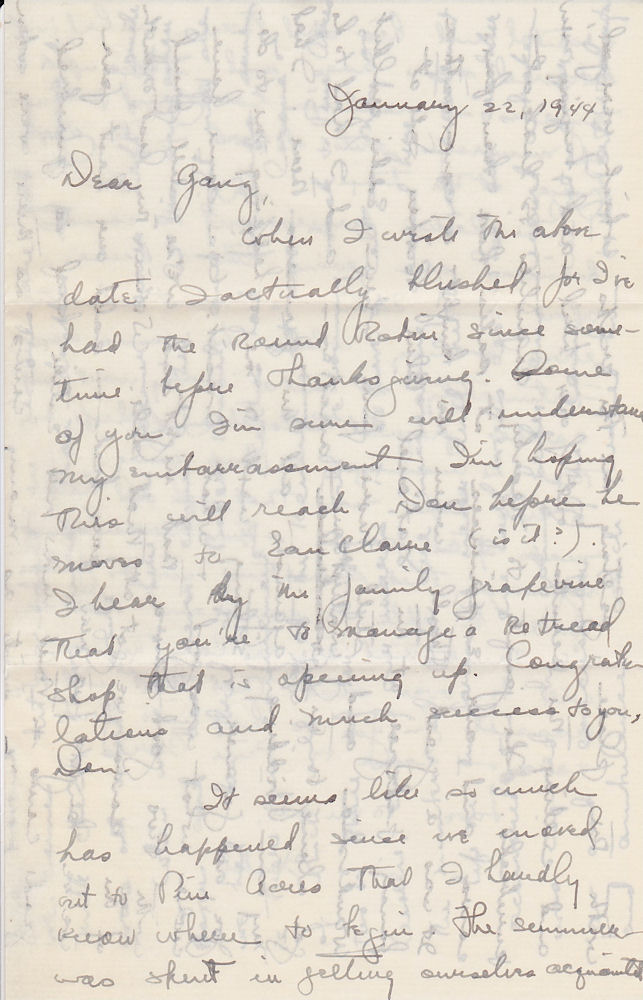 January 22, 1944
Dear Gang,
When I wrote the above
date I actually blushed for I've
had the Round Robin since some-
time before Thanksgiving. Some
of you I'm sure will understand
my embarrassment. I'm hoping
this will reach Don before he
moves to Eau Claire (is it?).
I hear by the family grapevine
that you're to manage a Retread
shop that is opening up. Congratu-
lations and much success to you,
Don.
It seems like so much
has happened since we moved
out to Pine Acres that I hardly
know where to begin. The summer
was spent in getting ourselves acquainted